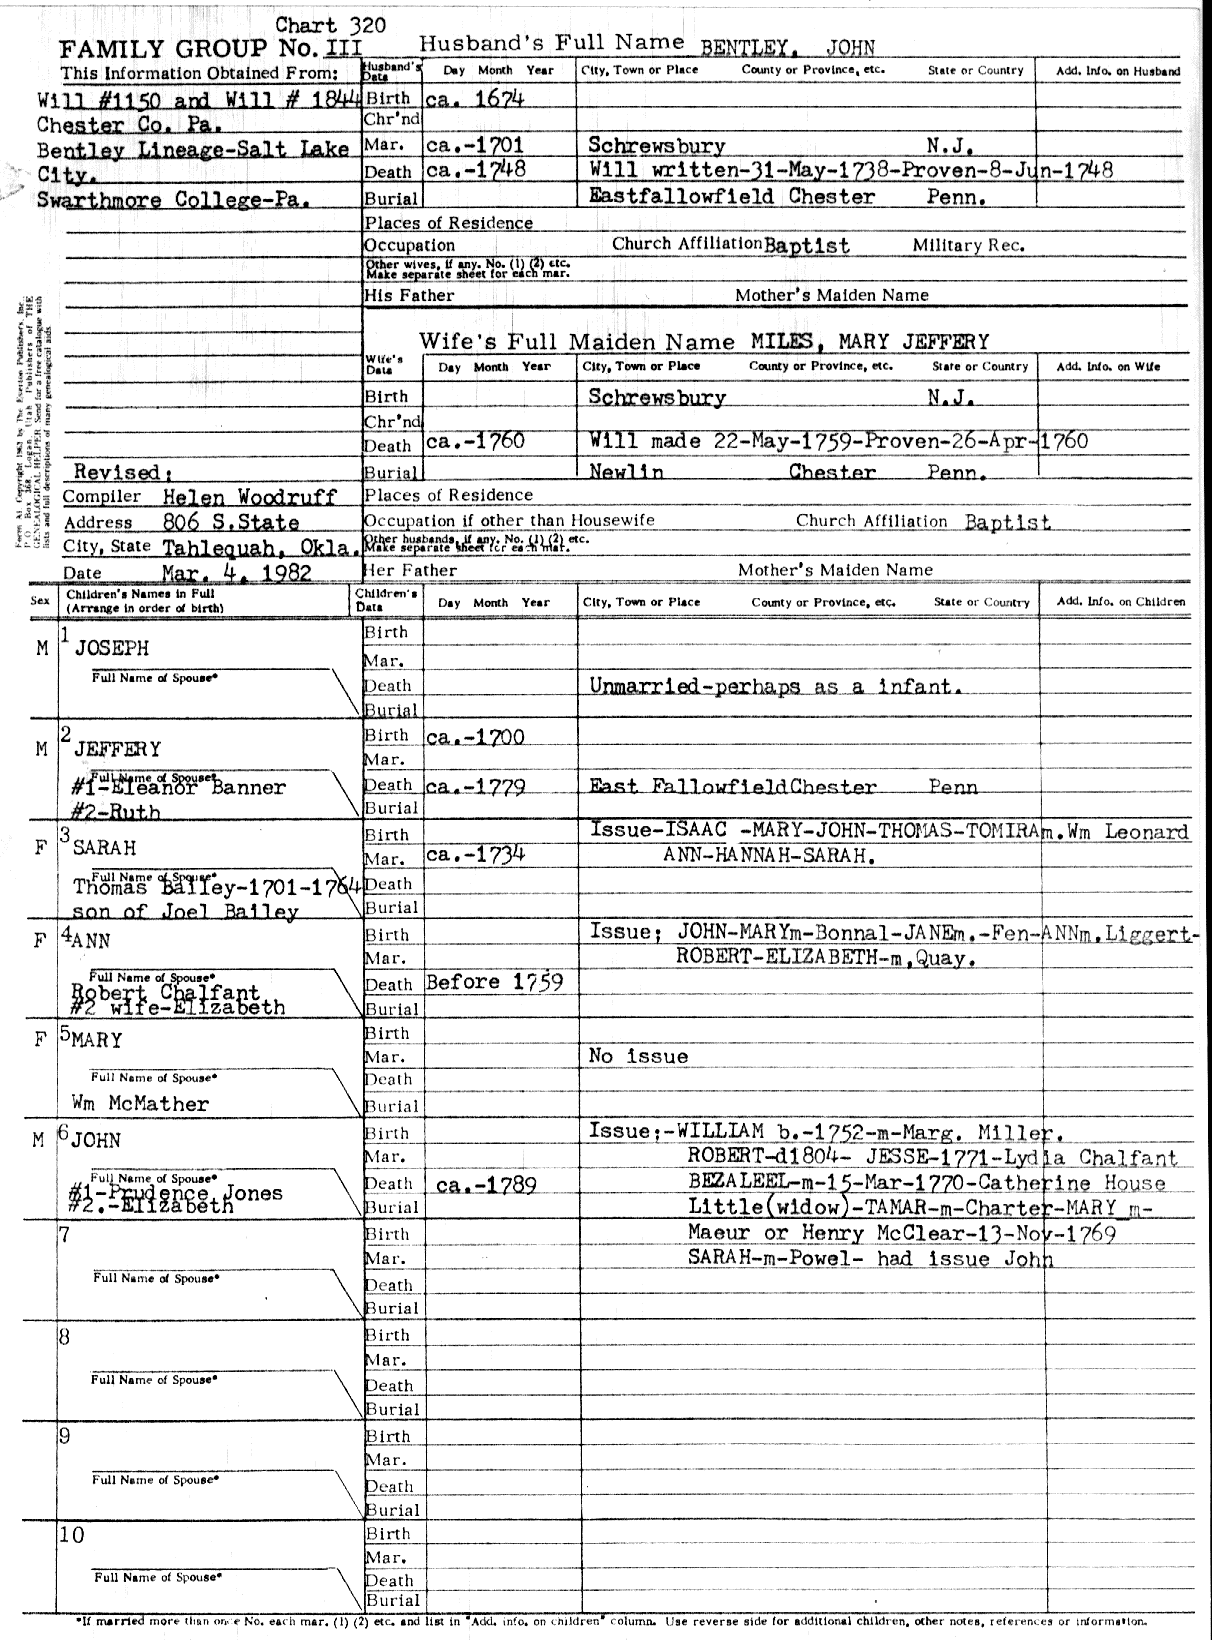 Chart 320
FAMILY GROUP No. III Husband's Full Name BENTLEY, JOHN
This Information Obtained From: Husband's Data Day Month Year City, Town or Place County or Province, etc. State or Country Add. Info. on Husband
Will #1150 and Will # 1844 Birth ca. 1674
Chester Co. Pa. Chr'nd
Bentley Lineage-Salt Lake Mar. ca.-1701 Schrewsbury N.J.
City. Death ca.-1748 Will written-31-May-1738-Proven-8-Jun-1748
Swarthmore College-Pa. Burial Eastfallowfield Chester Penn.
Places of Residence
Occupation Church Affiliation Baptist Military Rec.
Other wives, if any. No. (1) (2) etc.
Make separate sheet for each mar.
His Father Mother's Maiden Name
Form A1. Copyright 1962 by The Everton Publishers, Inc.
P.O. Box 368, Logan, Utah Publishers of THE
GENEALOGICAL HELPER. Send for a free catalogue with
lists and full descriptions of many genealogical aids.
Wife's Full Maiden Name MILES, MARY JEFFERY
Wife's Data Day Month Year City, Town or Place County or Province, etc. State or Country Add. Info. on Wife
Birth Schrewsbury N.J.
Chr'nd
Death ca.-1760 Will made 22-May-1759-Proven-26-Apr-1760
Revised: Burial Newlin Chester Penn.
Compiler Helen Woodruff Places of Residence
Address 806 S.State Occupation if other than Housewife Church Affiliation Baptist
City, State Tahlequah, Okla. Other husbands, if any. No. (1) (2) etc.
Make separate sheet for each mar.
Date Mar. 4, 1982 Her Father Mother's Maiden Name
Sex Children's Names in Full Children's Data Day Month Year City, Town or Place County or Province, etc. State or Country Add. Info. on Children
(Arrange in order of birth)
1 Birth
M JOSEPH Mar.
Full Name of Spouse* Death Unmarried-perhaps as a infant.
Burial
2 Birth ca.-1700
M JEFFERY Mar.
Full Name of Spouse*
#1-Eleanor Banner Death ca.-1779 East Fallowfield Chester Penn
#2-Ruth Burial
3 Birth Issue-ISAAC -MARY-JOHN-THOMAS-TOMIRAm.Wm Leonard
F SARAH Mar. ca.-1734 ANN-HANNAH-SARAH.
Full Name of Spouse*
Thomas Bailey-1701-1764 Death
son of Joel Bailey Burial
F 4 ANN Birth Issue; JOHN-MARYm-Bonnal-JANEm.-Fen-ANNm.Liggert-
Mar. ROBERT-ELIZABETH-m.Quay.
Full Name of Spouse*
Robert Chalfant Death Before 1759
#2 wife-Elizabeth Burial
F 5 MARY Birth
Mar. No issue
Full Name of Spouse* Death
Wm McMather Burial
M 6 JOHN Birth Issue;-WILLIAM b.-1752-m-Marg. Miller.
Mar. ROBERT-d1804- JESSE-1771-Lydia Chalfant
Full Name of Spouse*
#1-Prudence Jones Death ca.-1789 BEZALEEL-m-15-Mar-1770-Catherine House
#2.-Elizabeth Burial Little(widow)-TAMAR-m-Charter-MARY m-
7 Birth Maeur or Henry McClear-13-Nov-1769
Mar. SARAH-m-Powel- had issue John
Full Name of Spouse* Death
Burial
8 Birth
Mar.
Full Name of Spouse* Death
Burial
9 Birth
Mar.
Full Name of Spouse* Death
Burial
10 Birth
Mar.
Full Name of Spouse* Death
Burial
*If married more than once No. each mar. (1) (2) etc. and list in "Add. info. on children" column. Use reverse side for additional children, other notes, references or information.